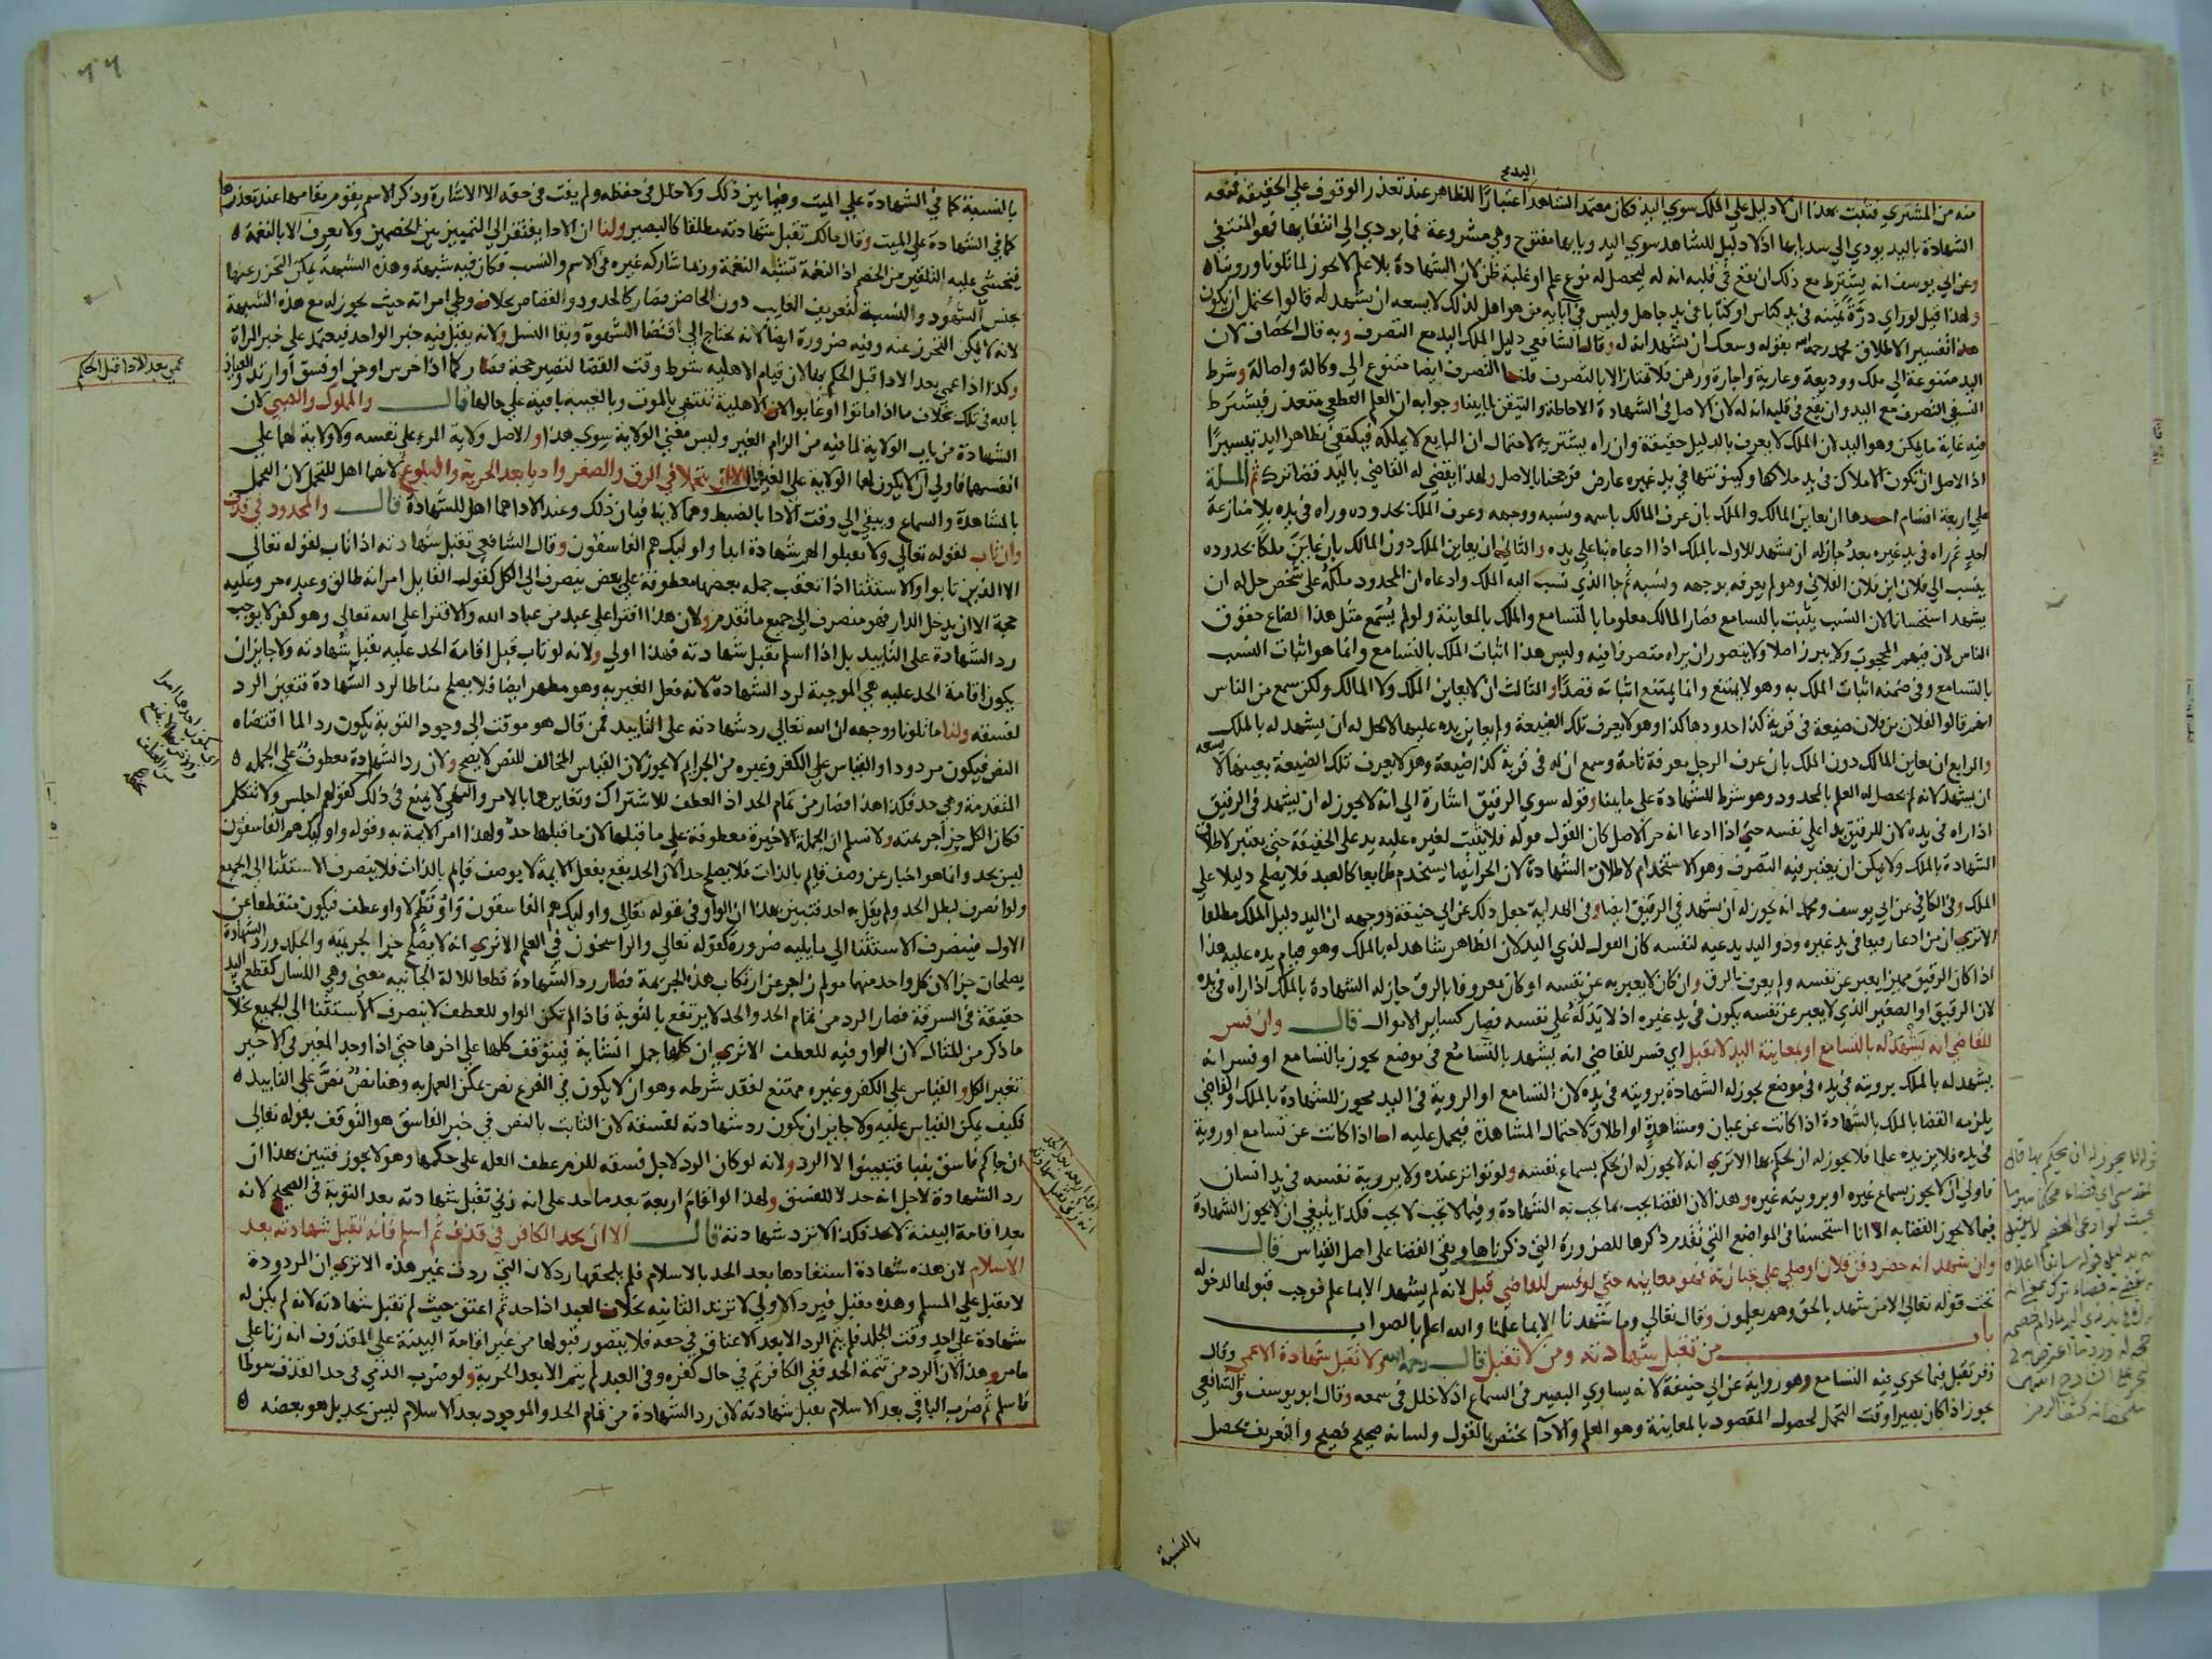 اليد مع
منه من المشتري فثبت بهذا ان لا دليل على الملك سوي اليد فكان معتمد الشاهد اعتبارًا للظاهر عند تعذر الوقوف علي الحقيقة فمنعه
الشهادة باليد يودي الي سد بابها اذ لا دليل للشاهد سوي اليد وبابها مفتوح وهي مشروعة فما يودي الي انتفايها فهو المنتفي
وعن ابي يوسف انه يشترط مع ذلك ان يقع في قلبه انه له ليحصل له نوع علم او غلبة ظن لان الشهادة بلا علم لا يجوز لما تلونا وروينا ه
ولهذا قيل لو راي درة ثمينة في يد كناس او كتابا في يد جاهل وليس في آبايه من هو اهل لذلك لا يسعه ان يشهد له قالوا يحتمل ان يكون
هذا تفسير الاطلاق محمد رحمه الله بقوله وسعك ان تشهد انه له وقال الشافعي دليل الملك اليد مع التصرف وبه قال الخصاف لان
اليد متنوعة الي ملك ووديعة وعارية واجارة ورهن فلا تمتاز الا بالتصرف قلنا التصرف ايضا متنوع الي وكالة واصالة وشرط
النسفي التصرف مع اليد وان يقع في قلبه انه له لان الاصل في الشهادة الاحاطة والتيقن لما بينا وجوابه ان العلم القطعي متعذر فيشترط
فيه غاية ما يمكن وهو اليد لان الملك لا يعرف بالدليل حقيقة وان راه يشتريه لاحتمال ان البايع لا يملكه فيكتفي بظاهر اليد تيسيرًا
اذ الاصل ان تكون الاملاك في يد ملاكها وكينونتها في يد غيره عارض فرجحنا بالاصل ولهذا يقضي له القاضي باليد قضا ترك ثم المسلة
علي اربعة اقسام احدها ان يعاين المالك والملك بان عرف المالك باسمه ونسبه ووجهه وعرف الملك بحدوده وراه في يده بلا منازعة
احد ثم راه في يد غيره بعد جاز له ان يشهد للاول بالملك اذا ادعاه بنا علي يده والثاني ان يعاين الملك دون المالك بان عاين ملكا بحدوده
ينسب الي فلان ابن فلان الفلاني وهو لم يعرفه بوجهه ونسبه ثم جا الذي نسب اليه الملك وادعاه ان المحدود ملكه علي شخص حل له ان
يشهد استحسانا لان النسب يثبت بالتسامع فصار المالك معلوما بالتسامع والملك بالمعاينة ولو لم يسمع مثل هذا لضاع حقوق
الناس لان فيهم المحجوب ولا يبرز اصلا ولا يتصور ان يراه متصرفا فيه وليس هذا اثبات الملك بالتسامع وانما هو اثبات النسب
بالتسامع وفي ضمنه اثبات الملك به وهو لا يمتنع وانما يمتنع اثباته قصدًا والثالث ان لا يعاين الملك ولا المالك ولكن سمع من الناس
انهم قالوا لفلان بن فلان ضيعة في قرية كذا حدودها كذا وهو لا يعرف تلك الضيعة ولم يعاين يده عليها لا يحل له ان يشهد له بالملك
والرابع ان يعاين المالك دون الملك بان عرف الرجل معرفة تامة وسمع ان له في قرية كذا ضيعة وهو لا يعرف تلك الضيعة بعينها لا يسعه
ان يشهد لانه لم يحصل له العلم بالمحدود وهو شرط للشهادة علي ما بينا وقوله سوي الرقيق اشارة الي انه لا يجوز له ان يشهد في الرقيق
اذا راه في يده لان للرقيق يدا علي نفسه حتي اذا ادعا انه حر الاصل كان القول قوله فلا يثبت لغيره عليه يد علي الحقيقة حتي يعتبر لاطلاق
الشهادة بالملك ولا يمكن ان يعتبر فيه التصرف وهو الاستخدام لاطلاق الشهادة لان الحر ايضا يستخدم طايعا كالعبد فلا يصلح دليلا علي
الملك وفي الكافي عن ابي يوسف ومحمد انه يجوز له ان يشهد في الرقيق ايضا وفي الهداية جعل ذلك عن ابي حنيفة ووجهه ان اليد دليل الملك مطلقا
الا تري ان من ادعا رقيقا في يد غيره وذو اليد يدعيه لنفسه كان القول لذي اليد لان الظاهر يشاهد له بالملك وهو قيام يده عليه هذا
اذا كان الرقيق مميزا يعبر عن نفسه ولم يعرف بالرق وان كان لا يعبر به عن نفسه او كان معروفا بالرق جاز له الشهادة بالملك اذا راه في يده
لان الرقيق او الصغير الذي لا يعبر عن نفسه يكون في يد غيره اذ لا يد له علي نفسه فصار كساير الاموال قال وان فسر
للقاضي انه يشهد له بالتسامع او بمعاينة اليد لا تقبل اي فسر للقاضي انه يشهد بالتسامع في موضع يجوز بالتسامع او فسر انه
يشهد له بالملك برويته في يده في موضع يجوز له الشهادة برويته في يده لان التسامع او الروية في اليد مجوز للشهادة بالملك والقاضي
يلزمه القضا بالملك بالشهادة اذا كانت عن عيان ومشاهدة او اطلاق لاحتمال المشاهدة فيحمل عليه اما اذا كانت عن تسامع او روية
في يده فلا يزيده علما فلا يجوز له ان يحكم بها الا تري انه لا يجوز له ان يحكم بسماع نفسه ولو تواتر عنده ولا بروية نفسه في يد انسان
فاولي ان لا يجوز بسماع غيره او بروية غيره وهذا لان القضا يجب بما يجب به الشهادة وفيما لا يجب لا يجب فكذا ينبغي ان لا يجوز الشهادة
فيما لا يجوز القضا به الا انا استحسنا في المواضع التي تقدم ذكرها للضرورة التي ذكرناها وبقي القضا علي اصل القياس قال
وان شهد انه حضر دفن فلان او صلي علي جنازته فهو معاينة حتي لو فسر للقاضي قبل لانه لم يشهد الا بما علم فوجب قبولها لدخوله
تحت قوله تعالي الا من شهد بالحق وهم يعلمون وقال تعالي وما شهدنا الا بما علمنا والله اعلم بالصواب
باب من تقبل شهادته ومن لا تقبل قال رحمه الله ولا تقبل شهادة الاعمي وقال
زفر تقبل فيما يجري فيه التسامع وهو رواية عن ابي حنيفة لانه يساوي البصير في السماع اذ لا خلل في سمعه وقال ابو يوسف والشافعي
يجوز اذا كان بصيرا وقت التحمل لحصول المقصود بالمعاينة وهو العلم والادا يختص بالقول ولسانه صحيح فصيح والتعريف يحصل
بالنسبة
٦٦
بالنسبة كما في الشهادة علي الميت وفيما بين ذلك ولا خلل في حفظه ولم يفت في حقه الا الاشارة وذكر الاسم يقوم مقامها عند تعذرها
كما في الشهادة علي الميت وقال مالك تقبل شهادته مطلقا كالبصير ولنا ان الادا يفتقر الي التمييز بين الخصمين ولا يعرف الا بالنغمة ه
فيخشي عليه التلقين من الخصم اذ النغمة تشبه النغمة وربما شاركه غيره في الاسم والنسب فكان فيه شبهة وهذه الشبهة يمكن التحرز عنها
بجنس الشهود والنسبة لتعريف الغايب دون الحاضر فصار كالحدود والقصاص بخلاف وطي امراته حيث يجوز له مع هذه الشبهة
لانه لا يمكن التحرز عنه وفيه ضرورة ايضا لانه يحتاج الي اقتضا الشهوة وبقا النسل ولانه يقبل فيه خبر الواحد فيعتمد علي خبر المراة
وكذا اذا عمي بعد الادا قبل الحكم بها لان قيام الاهلية شرط وقت القضا لتصير حجة فصار كما اذا خرس او جن او فسق او ارتد والعياذ
بالله في تلك بخلاف ما اذا ماتوا او غابوا لان الاهلية تنتهي بالموت وبالغيبة باقية علي حالها قال والمملوك والصبي لان
الشهادة من باب الولاية لما فيه من الزام الغير وليس معني الولاية سوي هذا والاصل ولاية المرء علي نفسه ولا ولاية لهما علي
انفسهما فاولي ان لا يكون لهما الولاية علي الغير قال الا ان يتحملا في الرق والصغر واديا بعد الحرية والبلوغ لانهما اهل للتحمل لان التحمل
بالمشاهدة والسماع ويبقي الي وقت الادا بالضبط وهما لا ينافيان ذلك وعند الادا هما اهل للشهادة قال والمحدود في قذف
وان تاب لقوله تعالي ولا تقبلوا لهم شهادة ابدا واوليك هم الفاسقون وقال الشافعي تقبل شهادته اذا تاب لقوله تعالي
الا الذين تابوا والاستثنا اذا تعقب جملة بعضها معطوفة علي بعض ينصرف الي الكل كقول القايل امراته طالق وعبده حر وعليه
حجة الا ان يدخل الدار فهو منصرف الي جميع ما تقدم ولان هذا افترا علي عبد من عباد الله والافترا علي الله تعالي وهو كفر لا يوجب
رد الشهادة علي التابيد بل اذا اسلم تقبل شهادته فهذا اولي ولانه لو تاب قبل اقامة الحد عليه تقبل شهادته ولا جايز ان
يكون اقامة الحد عليه هي الموجبة لرد الشهادة لانه فعل الغير به وهو مطهر ايضا فلا يصلح مناطا لرد الشهادة فتعين الرد
لفسقه ولنا ما تلونا ووجهه ان الله تعالي رد شهادته علي التابيد فمن قال هو موقت الي وجود التوبة يكون رد الما اقتضاه
النص فيكون مردودا والقياس علي الكفر وغيره من الجرايم لا يجوز لان القياس المخالف للنص لا يصح ولان رد الشهادة معطوف علي الجملة ه
المتقدمة وهي حد فكذا هذا فصار من تمام الحد اذ العطف للاشتراك وتغايرهما بالامر والنهي لا يمنع في ذلك كقولهم اجلس ولا تتكلم
فكان الكل جزا جريمته ولا نسلم ان الجملة الاخيرة معطوفة علي ما قبلها لان ما قبلها حد ولهذا امر الايمة به وقوله واوليك هم الفاسقون
ليس بحد وانما هو اخبار عن وصف قايم بالذات فلا يصلح حدا لان الحد يقع بفعل الايمة لا بوصف قايم بالذات فلا ينصرف الاستثنا الي الجميع
ولو انصرف لبطل الحد ولم يقل به احد فتبين بهذا ان الواو في قوله تعالي واوليك هم الفاسقون واو نظم لا واو عطف فيكون منقطعا عن
الاول فينصرف الاستثنا الي ما يليه ضرورة كقوله تعالي والراسخون في العلم الا تري انه لا يصلح جزا لجريمته والجلد ورد الشهادة
يصلحان جزا لان كل واحد منهما مولم زاجر عن ارتكاب هذه الجريمة فصار رد الشهادة قطعا للالة الجانية معني وهي اللسان كقطع اليد
حقيقة في السرقة فصار الرد من تمام الحد والحد لا يرتفع بالتوبة فاذا لم تكن الواو للعطف لا ينصرف الاستثنا الي الجميع بخلاف
ما ذكر من المثال لان الواو فيه للعطف الا تري ان كلها جمل انشاية فيتوقف كلها علي اخرها حتي اذا وجد المغير في الاخير
تغير الكل والقياس علي الكفر وغيره ممتنع لفقد شرطه وهو ان لا يكون في الفرع نص يمكن العمل به وهنا نص نص علي التابيد ه
فكيف يمكن القياس عليه ولا جايز ان يكون رد شهادته لفسقه لان الثابت بالنص في خبر الفاسق هو التوقف بقوله تعالي
ان جاكم فاسق بنبا فتبينوا لا الرد ولانه لو كان الرد لاجل فسقه للزم عطف العلة علي حكمها وهو لا يجوز فتبين بهذا ان
رد الشهادة لاجل انه حد لا للفسق ولهذا لو اقام اربعة بعد ما حد علي انه زني تقبل شهادته بعد التوبة في الصحيح لانه
بعد اقامة البينة لا يحد فكذا لا ترد شهادته قال الا ان يحد الكافر في قذف ثم اسلم فانه تقبل شهادته بعد
الاسلام لان هذه شهادة استفادها بعد الحد بالاسلام فلم يلحقها رد لان التي ردت غير هذه الا تري ان المردودة
لا تقبل علي المسلم وهذه تقبل فبرد الاولي لا ترتد الثانية بخلاف العبد اذا حد ثم اعتق حيث لم تقبل شهادته لانه لم يكن له
شهادة علي احد وقت الجلد فلم يتم الرد الا بعد الاعتاق في حقه فلا يتصور قبولها من غير اقامة البينة علي المقذوف انه زنا علي
ما مر وهذا لان الرد من تتمة الحد ففي الكافر تم في حال كفره وفي العبد لم يتم الا بعد الحرية ولو ضرب الذمي في حد القذف سوطا
فاسلم ثم ضرب الباقي بعد الاسلام تقبل شهادته لان رد الشهادة من تمام الحد والموجود بعد الاسلام ليس بحد بل هو بعضه ه
عمي بعد الادا قبل الحكم